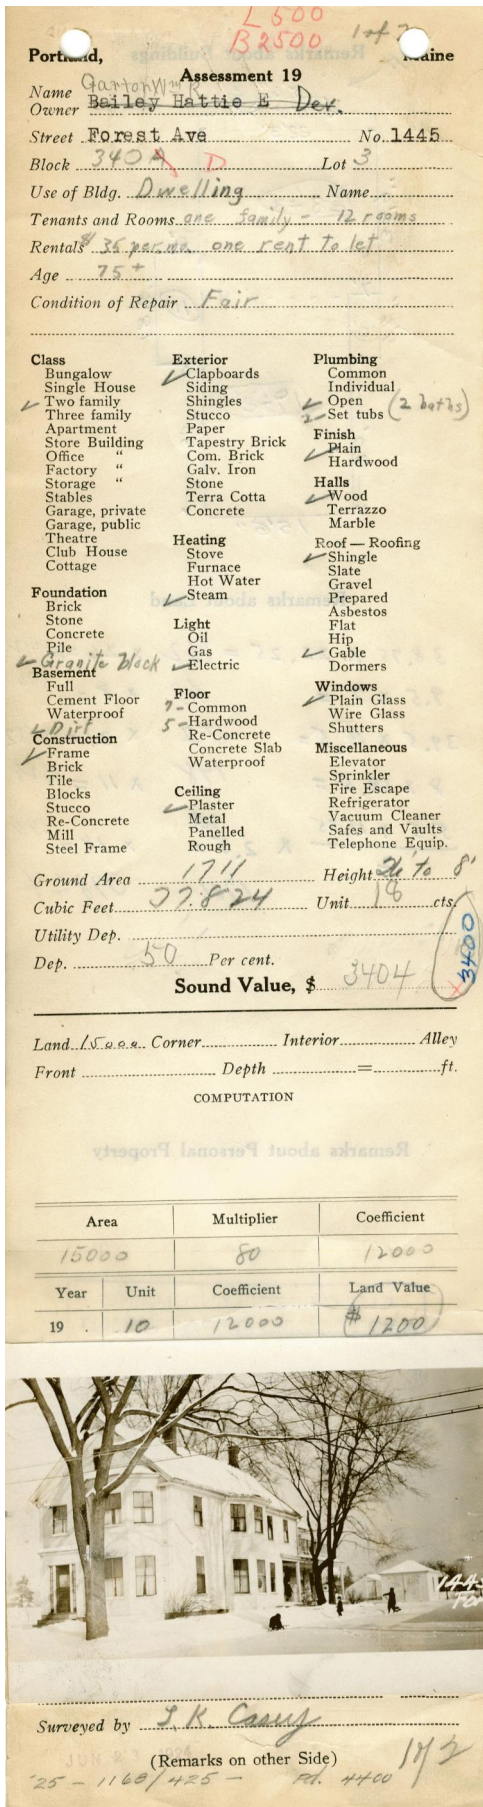 L 500
B 2500
1 of 2
Portland, Maine
Assessment 19
Garton Wm R
Name Owner Bailey Hattie E Dev.
Street Forest Ave No. 1445
Block 340A D Lot 3
Use of Bldg. Dwelling Name
Tenants and Rooms one family - 12 rooms
Rentals $ 35 per mo. one rent to let
Age 75+
Condition of Repair Fair
Class
Bungalow
Single House
✓ Two family
Three family
Apartment
Store Building
Office "
Factory "
Storage "
Stables
Garage, private
Garage, public
Theatre
Club House
Cottage
Foundation
Brick
Stone
Concrete
Pile
✓ Granite block
Basement
Full
Cement Floor
Waterproof
✓ Dirt
Construction
✓ Frame
Brick
Tile
Blocks
Stucco
Re-Concrete
Mill
Steel Frame
Exterior
✓ Clapboards
Siding
Shingles
Stucco
Paper
Tapestry Brick
Com. Brick
Galv. Iron
Stone
Terra Cotta
Concrete
Heating
Stove
Furnace
Hot Water
✓ Steam
Light
Oil
Gas
✓ Electric
Floor
7 - Common
5 - Hardwood
Re-Concrete
Concrete Slab
Waterproof
Ceiling
✓ Plaster
Metal
Panelled
Rough
Plumbing
Common
Individual
✓ Open (2 baths)
2 Set tubs
Finish
✓ Plain
Hardwood
Halls
✓ Wood
Terrazzo
Marble
Roof — Roofing
✓ Shingle
Slate
Gravel
Prepared
Asbestos
Flat
Hip
✓ Gable
Dormers
Windows
✓ Plain Glass
Wire Glass
Shutters
Miscellaneous
Elevator
Sprinkler
Fire Escape
Refrigerator
Vacuum Cleaner
Safes and Vaults
Telephone Equip.
Ground Area 1711 Height 26' to 8'
Cubic Feet 37824 Unit 18 cts.
Utility Dep.
Dep. 50 Per cent.
3400
Sound Value, $ 3404
Land 15000 Corner Interior Alley
Front Depth = ft.
COMPUTATION
Area Multiplier Coefficient
15000 80 12000
Year Unit Coefficient Land Value
19 . 10 12000 $ 1200
Surveyed by L. K. Casey
(Remarks on other Side)
1 of 2
'25 - 1168/425 - Pd. 4400